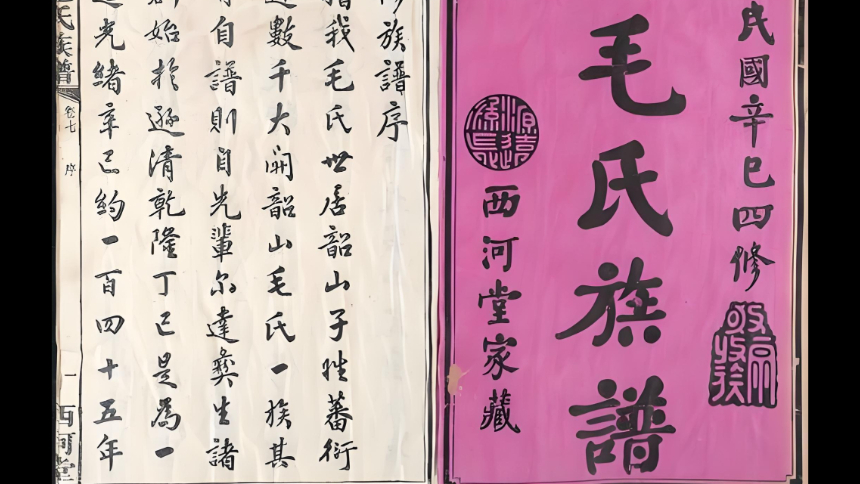 民國辛巳四修
敬宗收族
毛氏族譜
西河堂家藏
族譜序
我毛氏世居韶山子姓蕃衍
數千大開韶山毛氏一族其
自譜則自先輩尔達彝生諸
始於遜清乾隆丁巳是為一
光緒辛巳約一百四十五年
氏族譜
卷七 序
一
西河堂